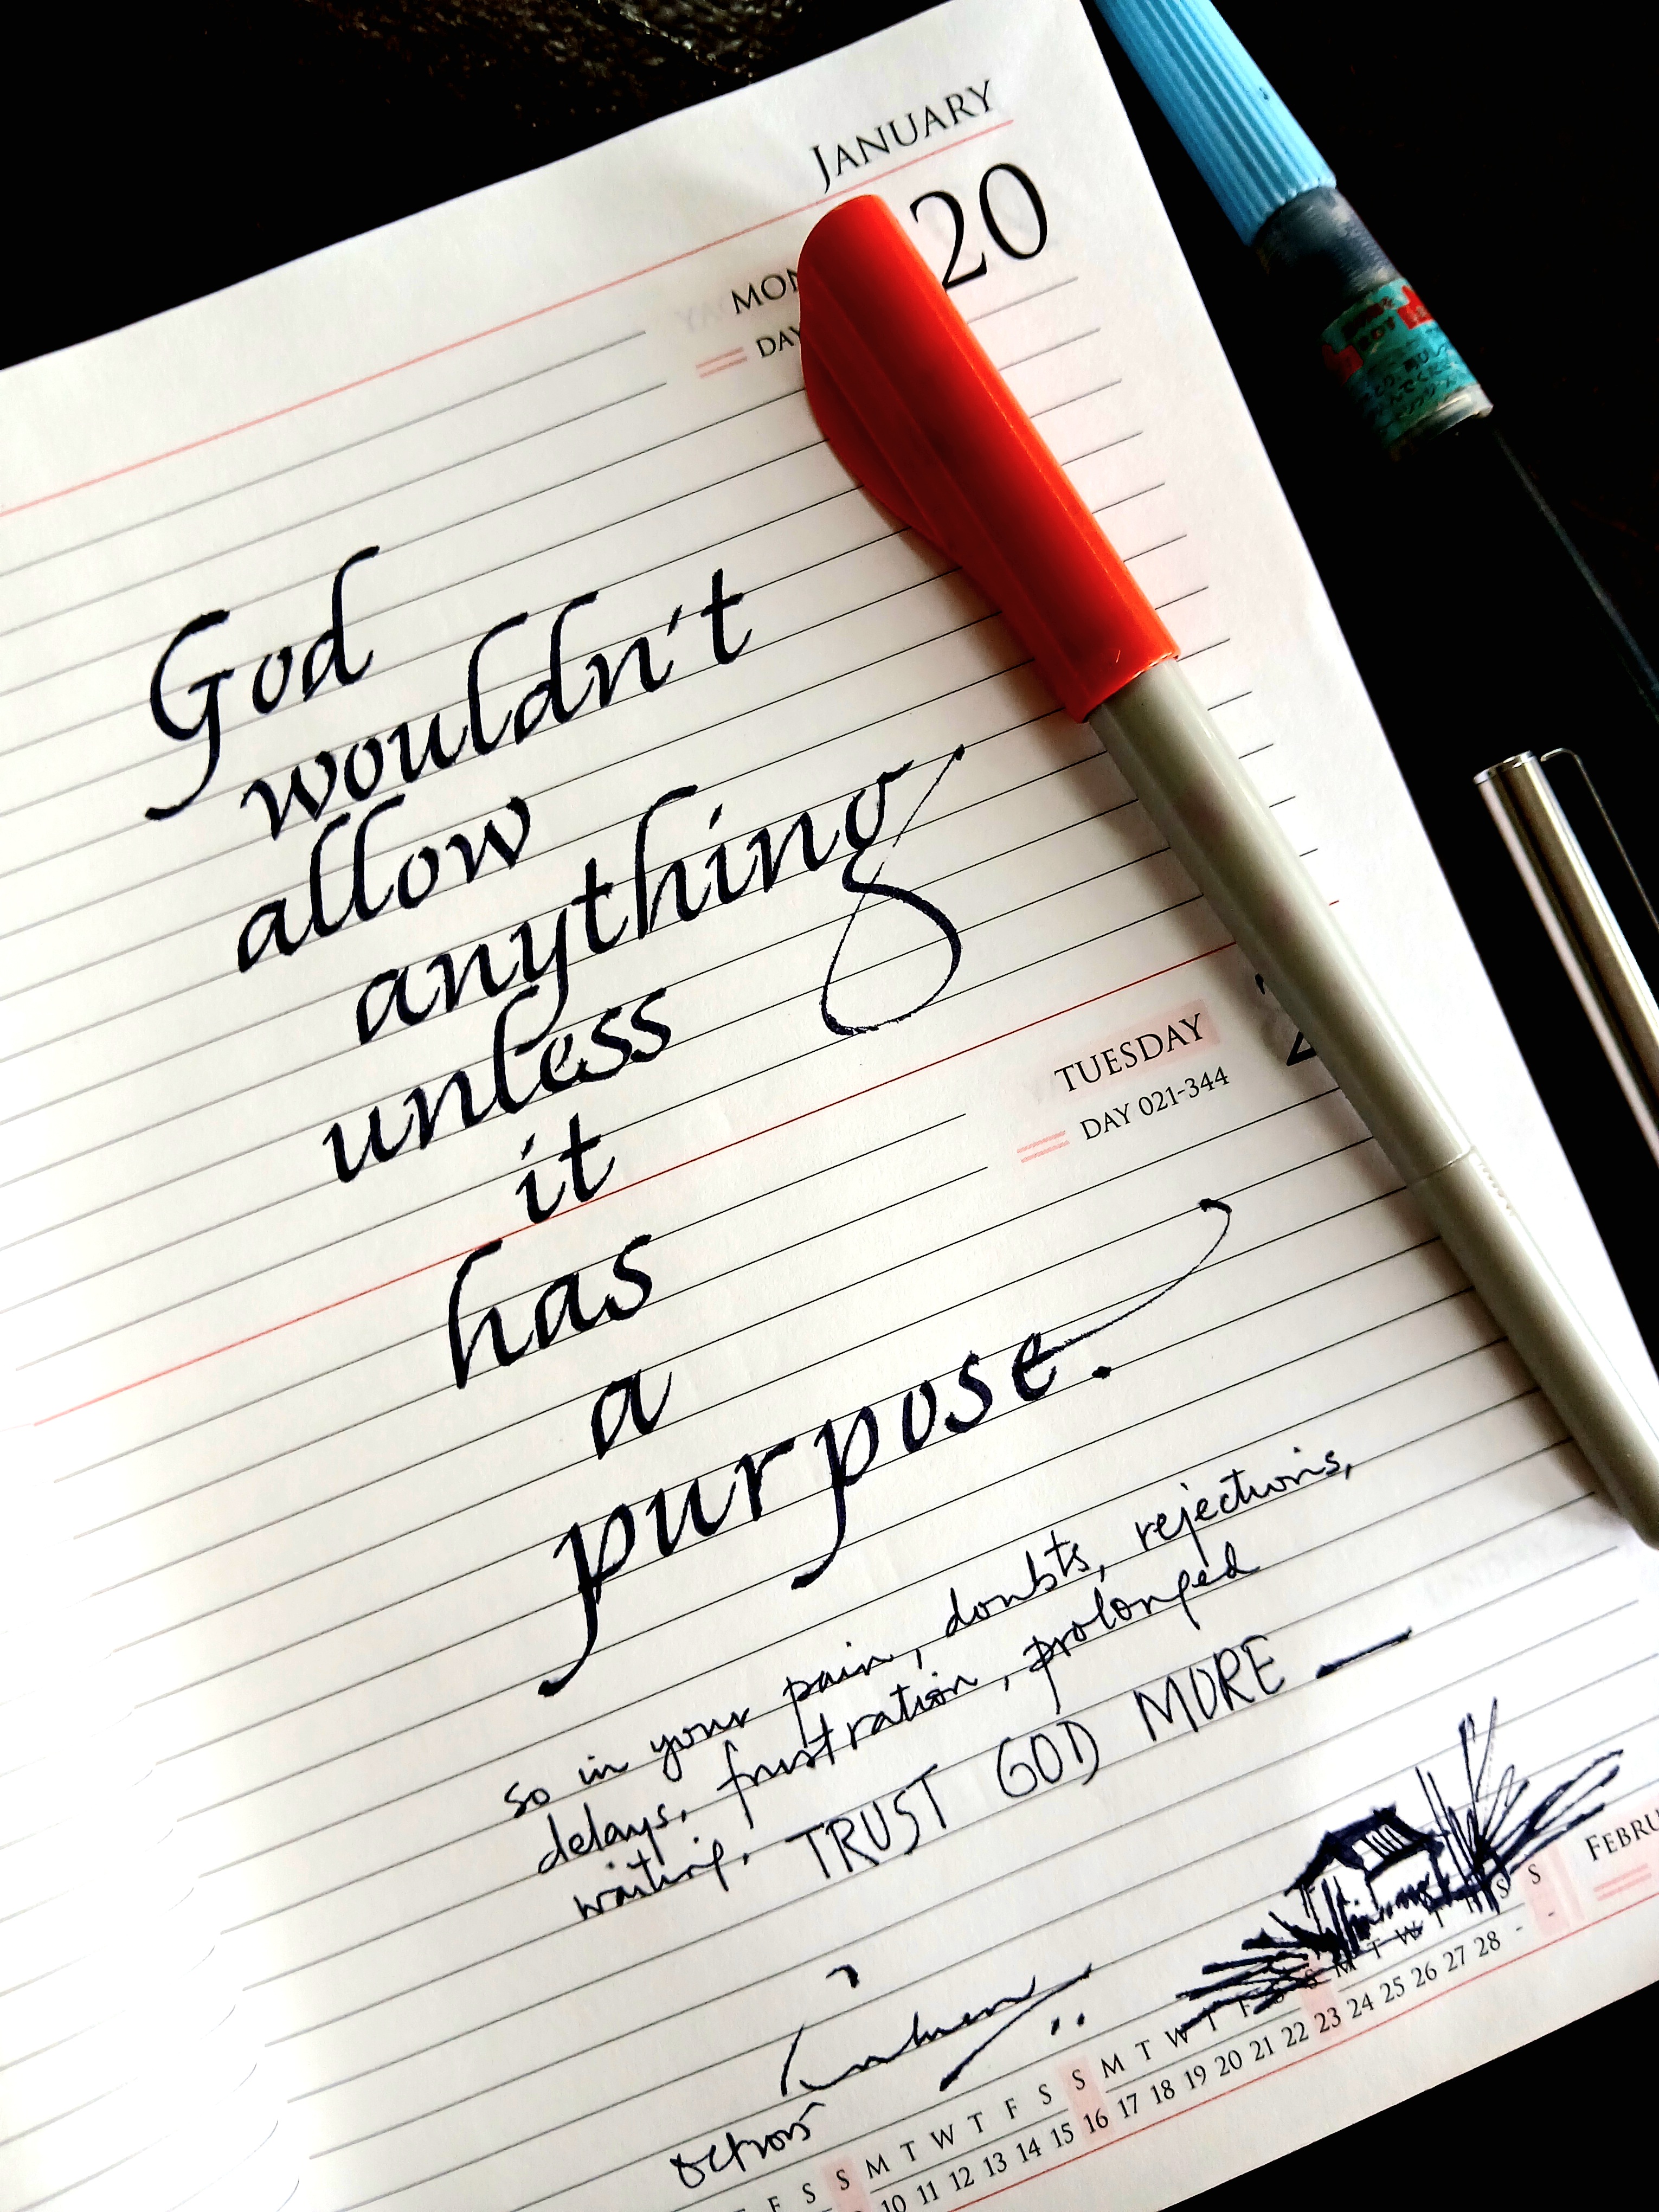 JANUARY
20
MON
DAY
God
wouldn't
allow
anything
unless
it
TUESDAY
DAY 021-344
has
a
purpose.
so in your pain, doubts, rejections,
delays, frustration, prolonged
waiting. TRUST GOD MORE —
FEBRU
F S S M T W T F S S M T W T F S S M T W T F S S
10 11 12 13 14 15 16 17 18 19 20 21 22 23 24 25 26 27 28 - -